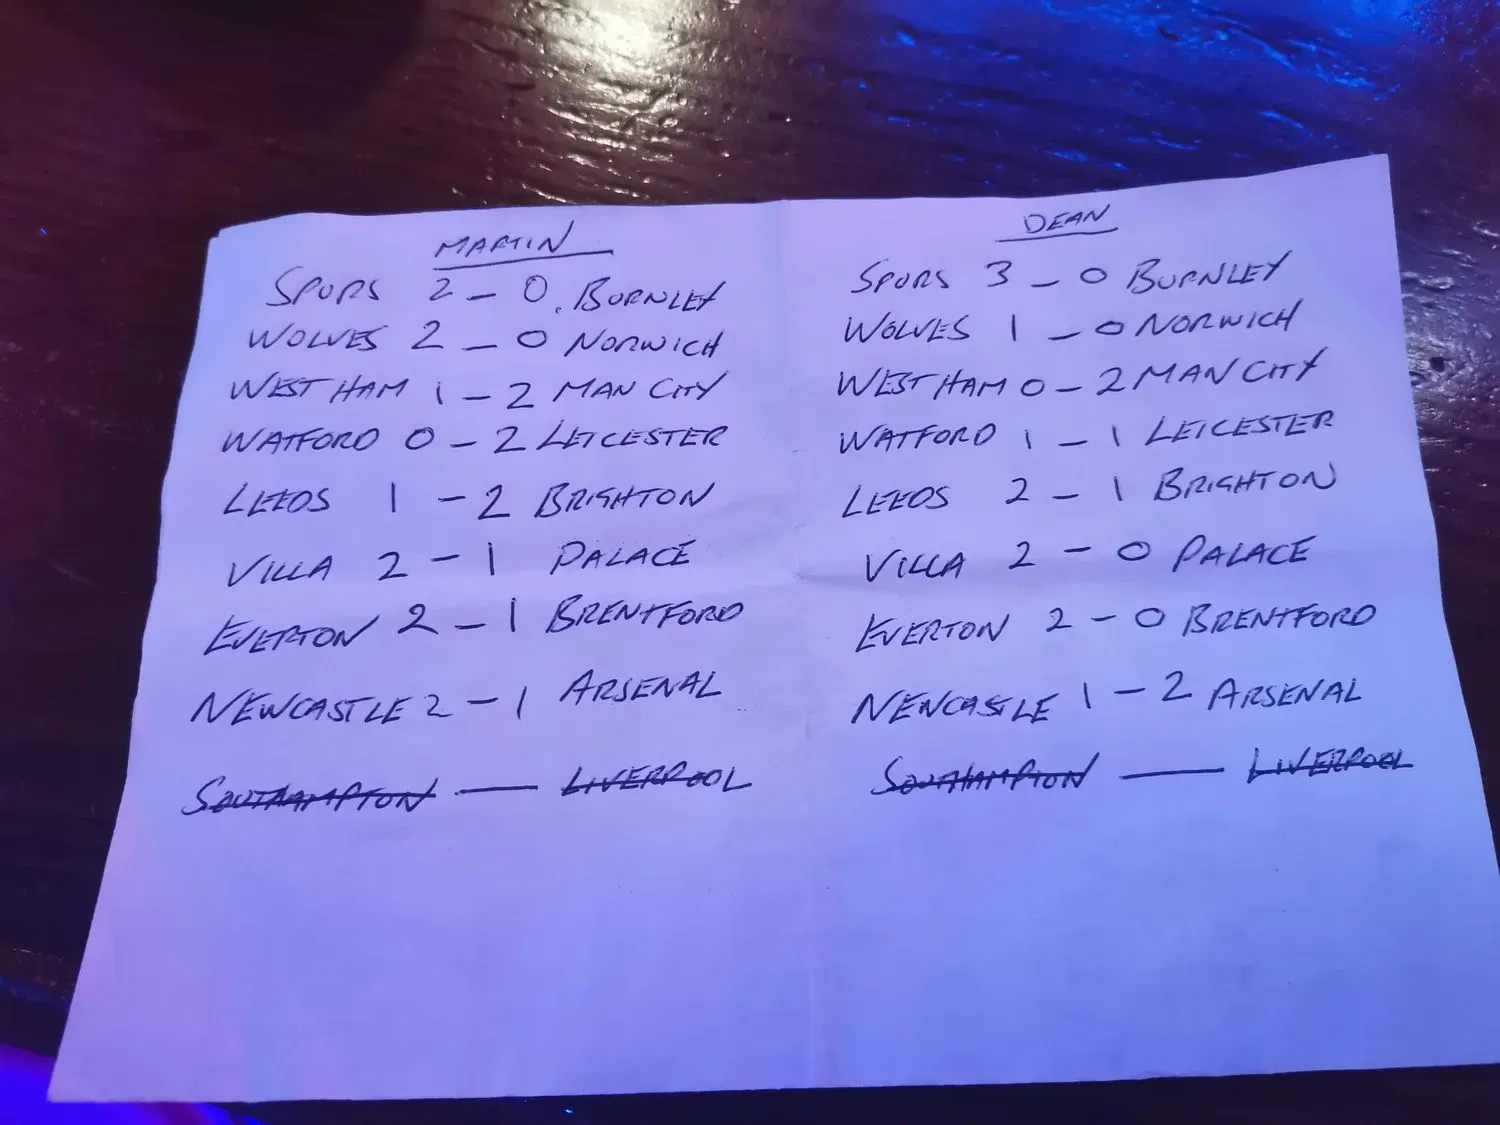 MARTIN
SPURS 2 - 0 BURNLEY
WOLVES 2 - 0 NORWICH
WEST HAM 1 - 2 MAN CITY
WATFORD 0 - 2 LEICESTER
LEEDS 1 - 2 BRIGHTON
VILLA 2 - 1 PALACE
EVERTON 2 - 1 BRENTFORD
NEWCASTLE 2 - 1 ARSENAL
SOUTHAMPTON — LIVERPOOL
DEAN
SPURS 3 - 0 BURNLEY
WOLVES 1 - 0 NORWICH
WEST HAM 0 - 2 MAN CITY
WATFORD 1 - 1 LEICESTER
LEEDS 2 - 1 BRIGHTON
VILLA 2 - 0 PALACE
EVERTON 2 - 0 BRENTFORD
NEWCASTLE 1 - 2 ARSENAL
SOUTHAMPTON — LIVERPOOL